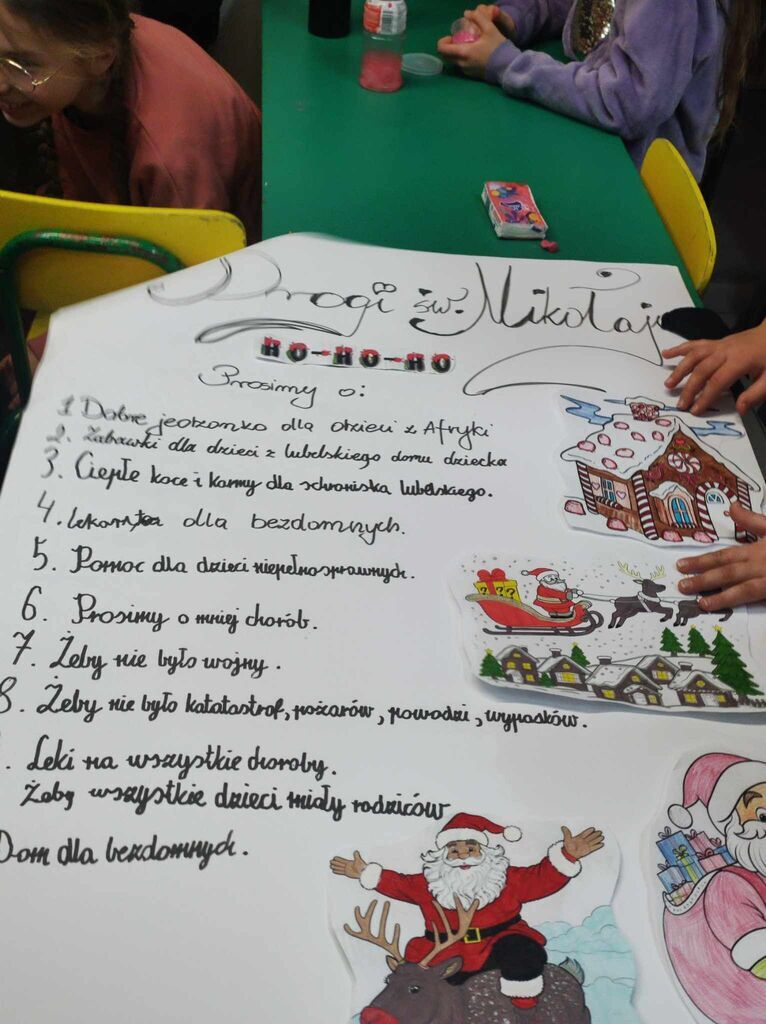 Drogi św. Mikołaju
HO-HO-HO
Prosimy o:
1 Dobre jedzonko dla dzieci z Afryki
2. Zabawki dla dzieci z lubelskiego domu dziecka
3. Ciepłe koce i karmy dla schroniska lubelskiego.
4. lekarstwa dla bezdomnych.
5. Pomoc dla dzieci niepełnosprawnych.
6. Prosimy o mniej chorób.
7. Żeby nie było wojny.
8. Żeby nie było katatastrof, pożarów, powodzi, wypadków.
. Leki na wszystkie choroby.
Żeby wszystkie dzieci miały rodziców
Dom dla bezdomnych.